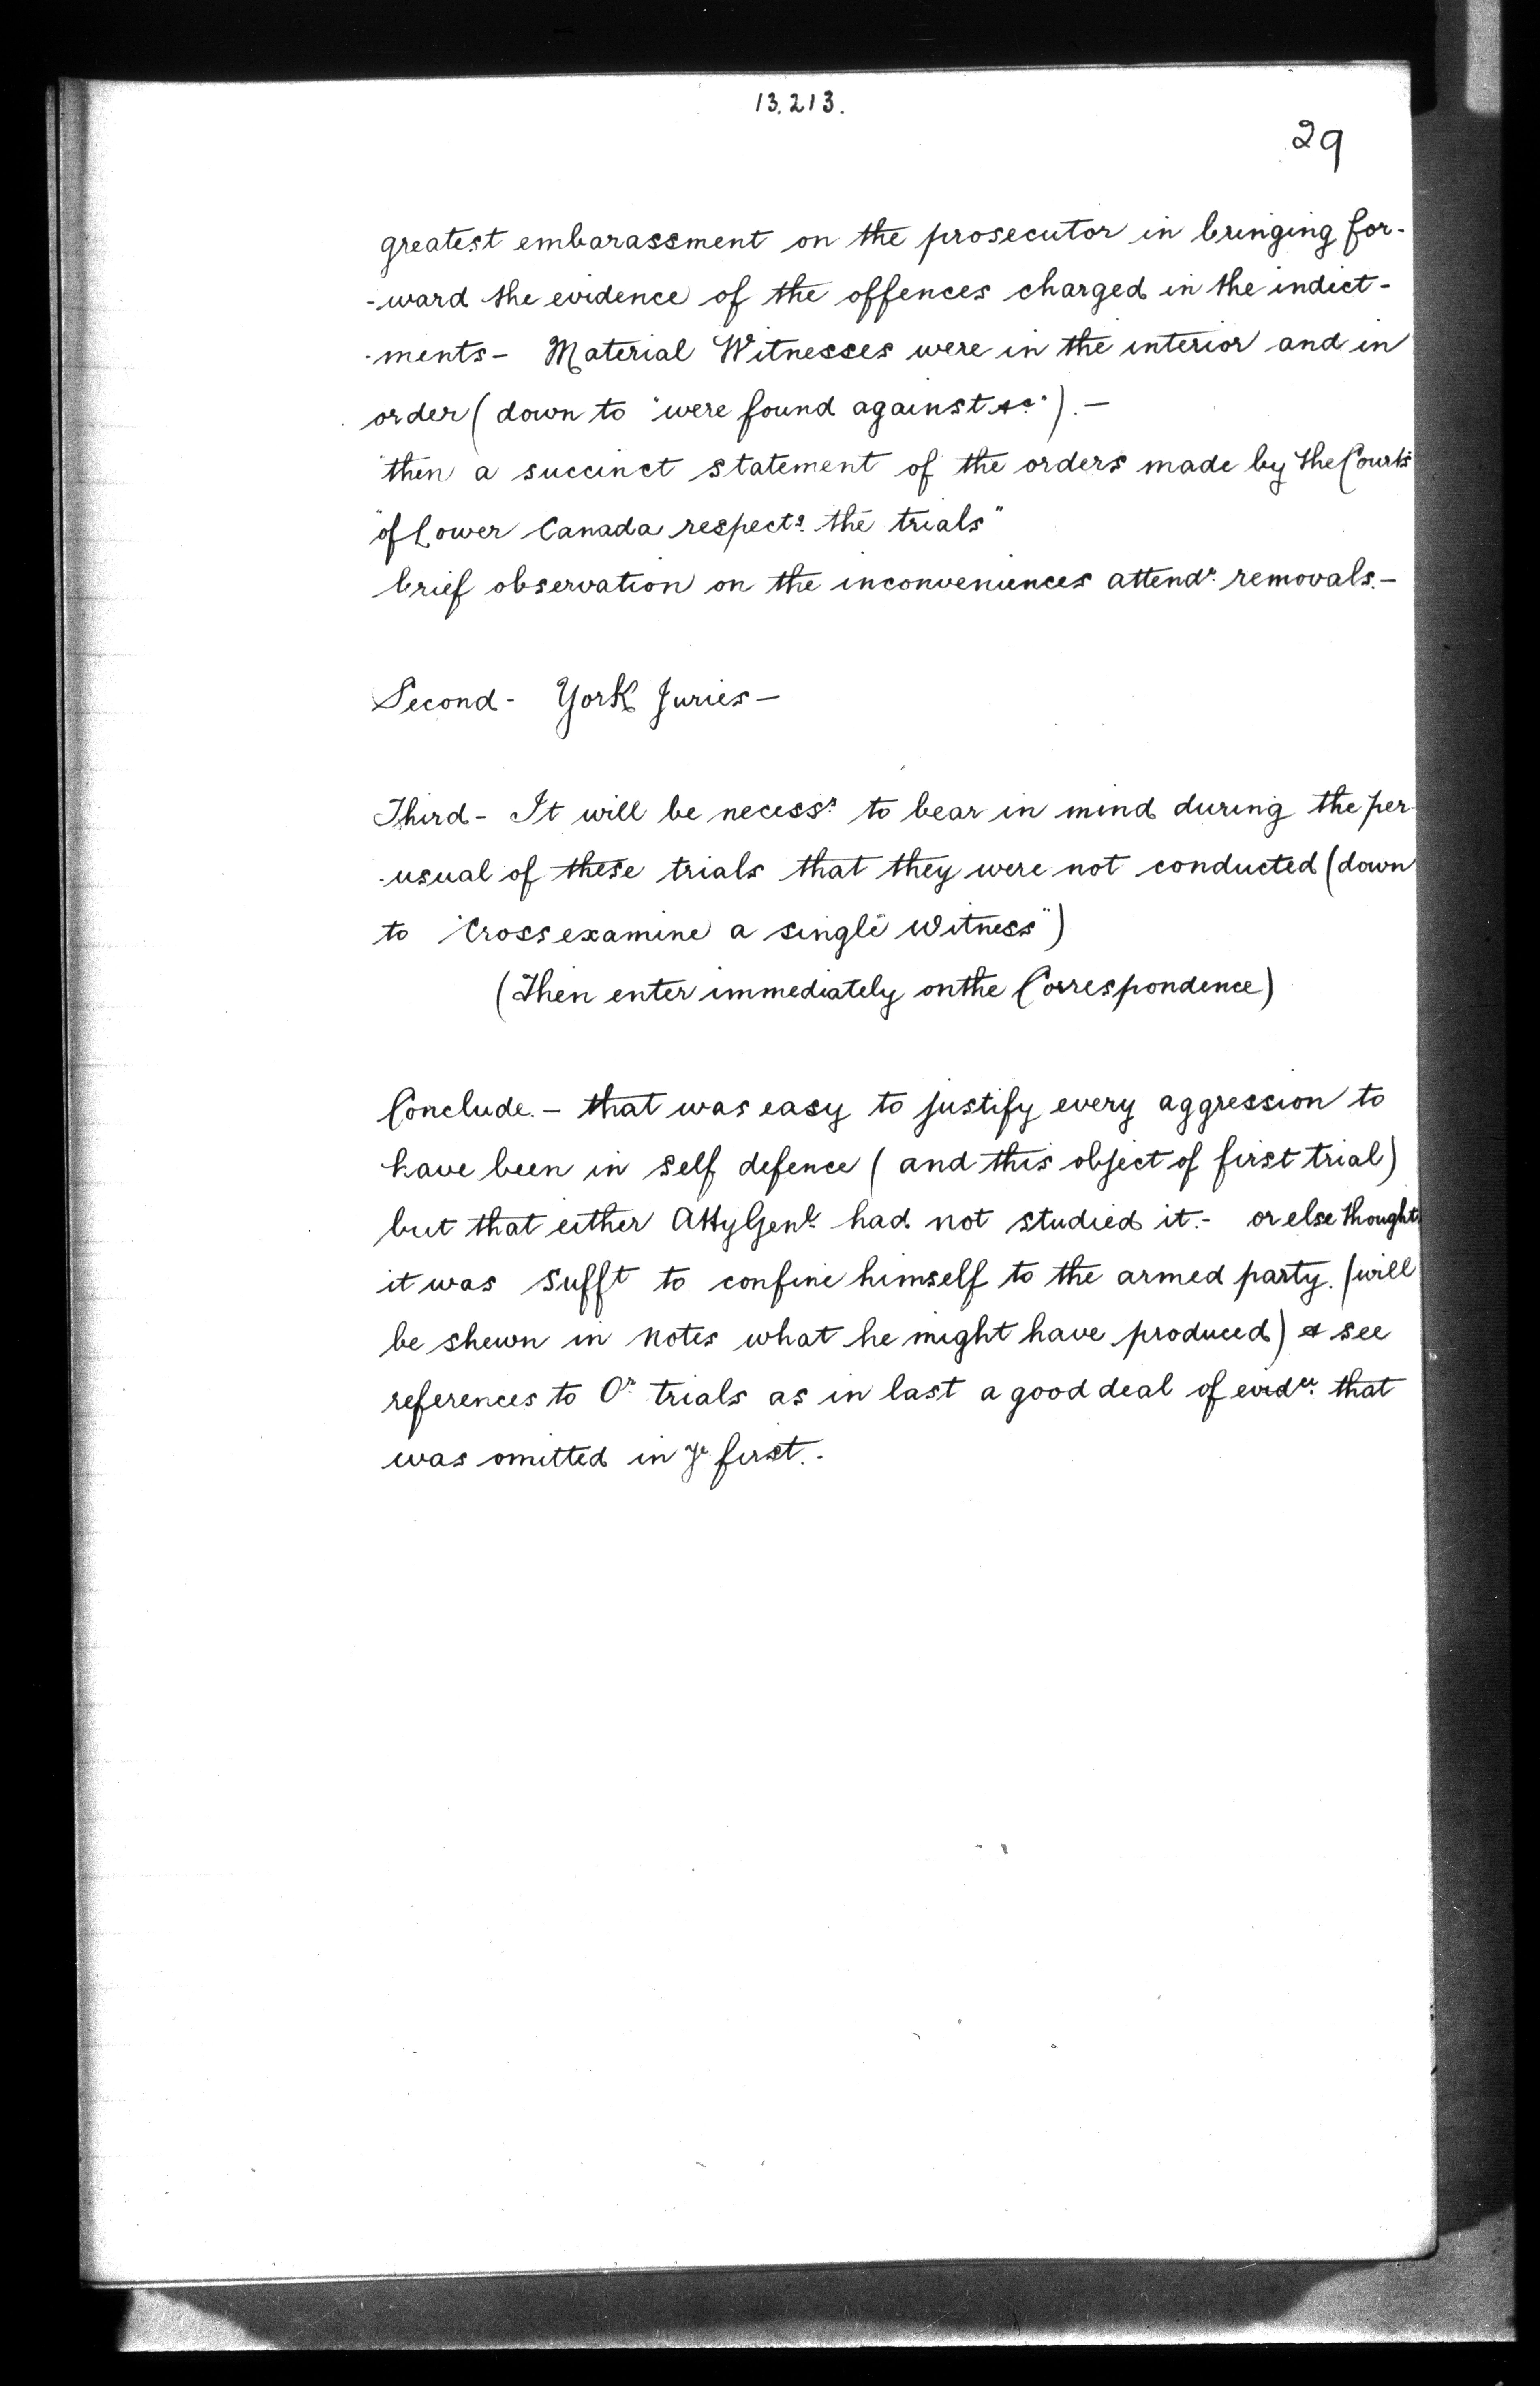 13.213.
29
greatest embarassment on the prosecutor in bringing for-
-ward the evidence of the offences charged in the indict-
-ments- Material Witnesses were in the interior and in
order (down to "were found against &c"). -
"then a succinct statement of the orders made by the Courts
"of Lower Canada respectg the trials"
brief observation on the inconveniences attendt removals.-
Second- York Juries-
Third- It will be necessy to bear in mind during the per-
-usual of these trials that they were not conducted (down
to "Cross examine a single witness")
(Then enter immediately on the Correspondence)
Conclude. - that was easy to justify every aggression to
have been in self defence (and this object of first trial)
but that either Atty Genl had not studied it.- or else thought
it was sufft to confine himself to the armed party. (will
be shewn in notes what he might have produced) & see
references to Or trials as in last a good deal of evidce that
was omitted in ye first.-